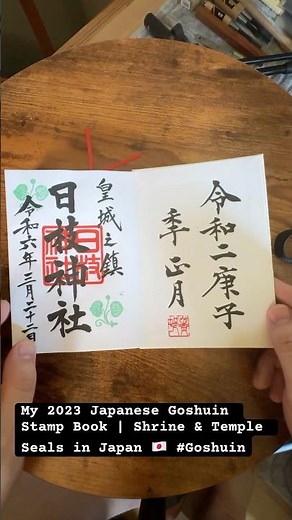 令和二庚子
秊 正月
皇城之鎮
日枝神社
令和六年三月二十二日
My 2023 Japanese Goshuin
Stamp Book | Shrine & Temple
Seals in Japan 🇯🇵 #Goshuin